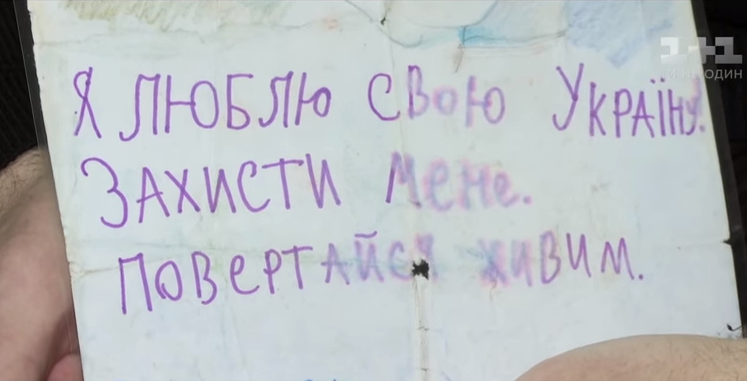 1+1
Я ЛЮБЛЮ СВОЮ УКРАЇНУ!
ЗАХИСТИ МЕНЕ.
ПОВЕРТАЙСЯ ЖИВИМ.